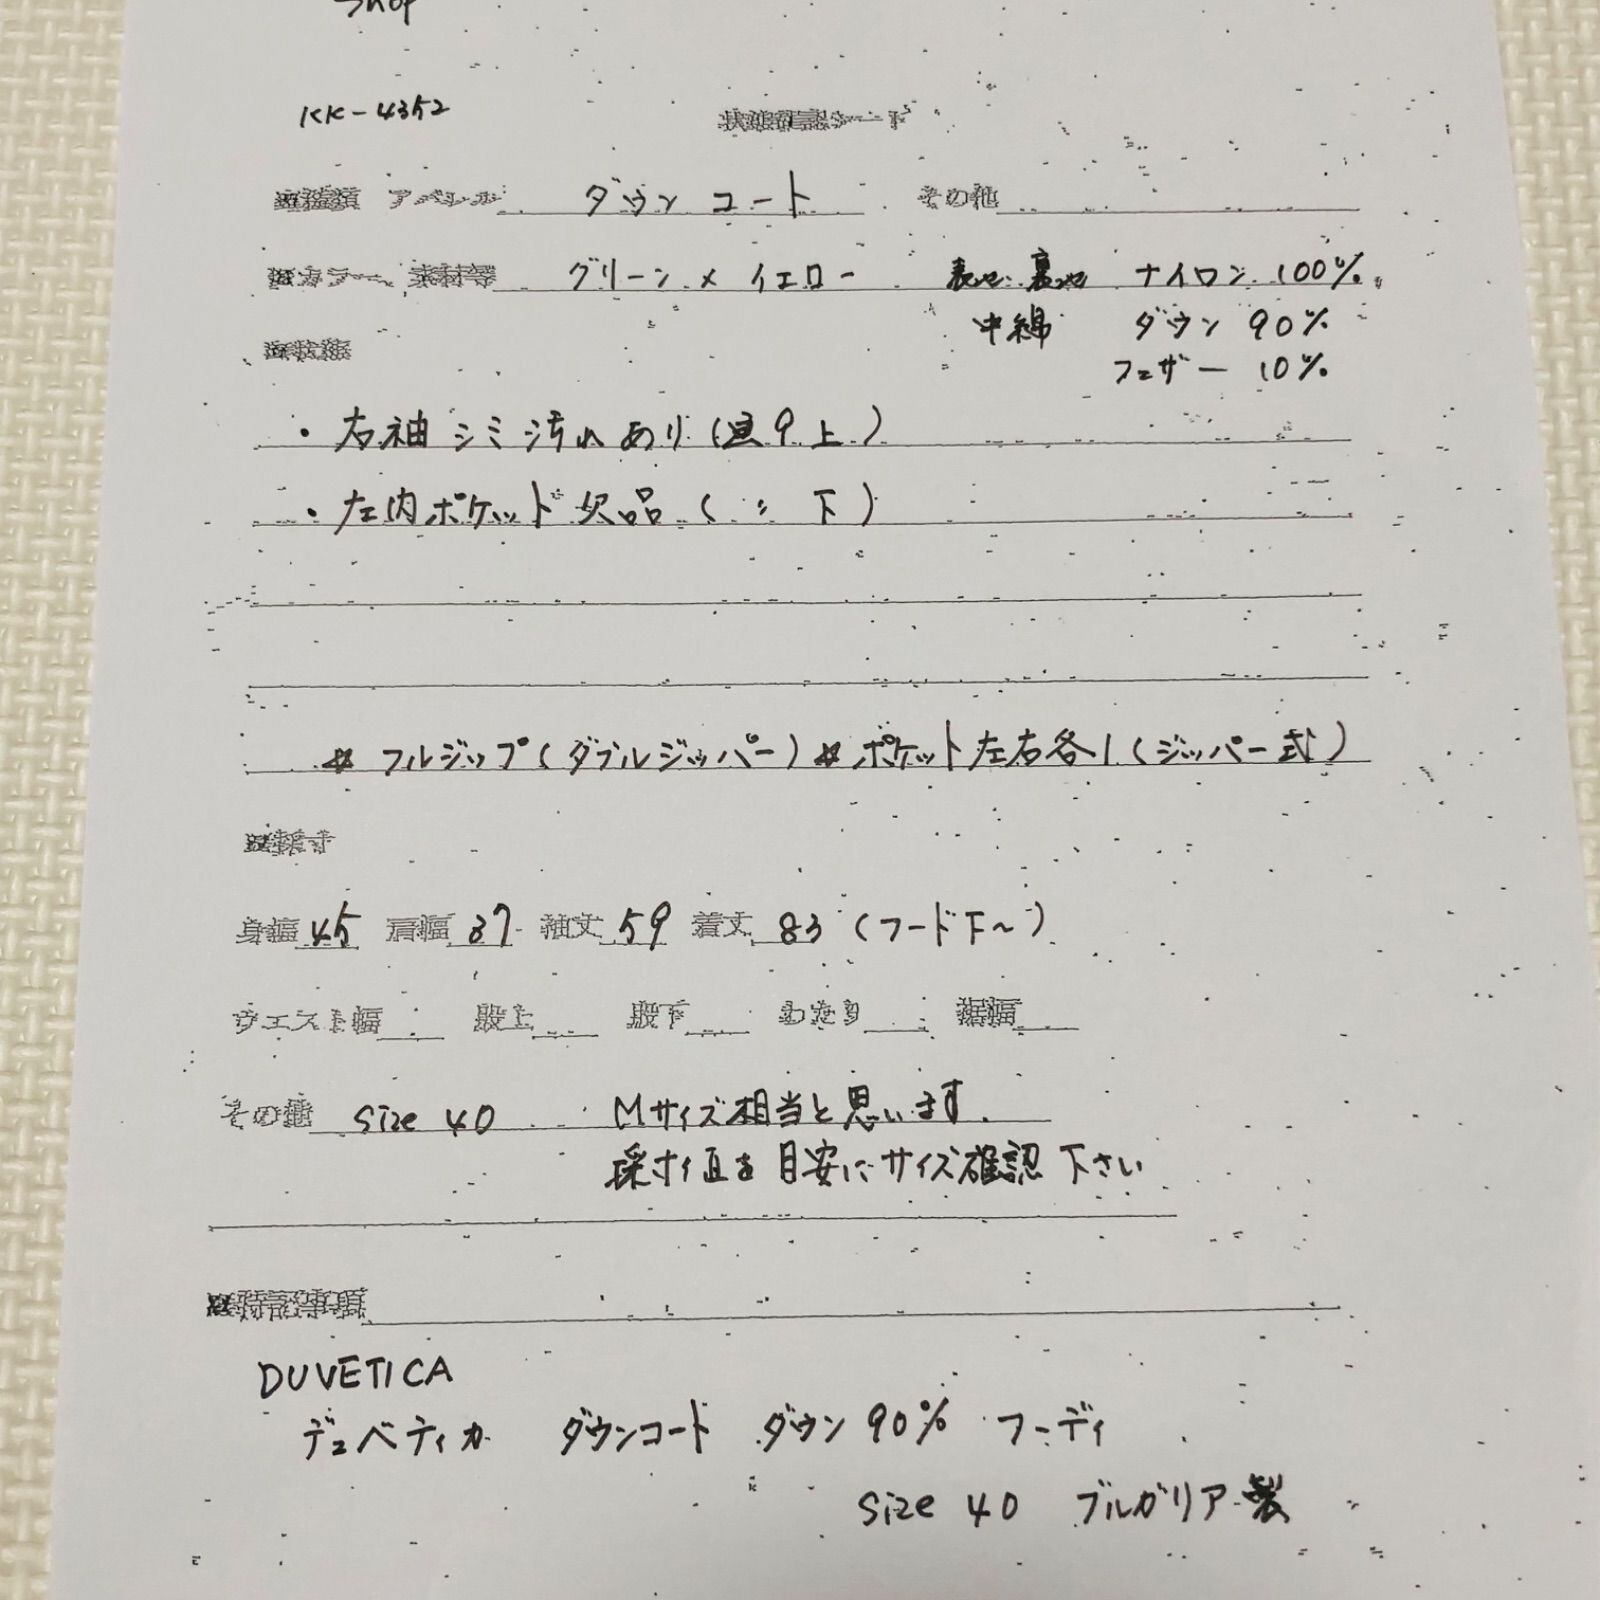 Shop
KK-4352 状態確認シート
種類 アパレル ダウンコート その他
カラー、素材等 グリーン×イエロー 表地・裏地 ナイロン 100%
中綿 ダウン 90%
フェザー 10%
状態
・右袖シミ汚れあり(画9上)
・左内ポケット欠品(〃下)
☆フルジップ(ダブルジッパー)☆ポケット左右各1(ジッパー式)
採寸
身幅 45 肩幅 37 袖丈 59 着丈 83 (フード下~)
ウエスト幅 股上 股下 わたり 裾幅
その他 size 40 Mサイズ相当と思います.
採寸値を目安にサイズ確認下さい
特記事項
DUVETICA
デュベティカ ダウンコート ダウン90% フーディ
size 40 ブルガリア製